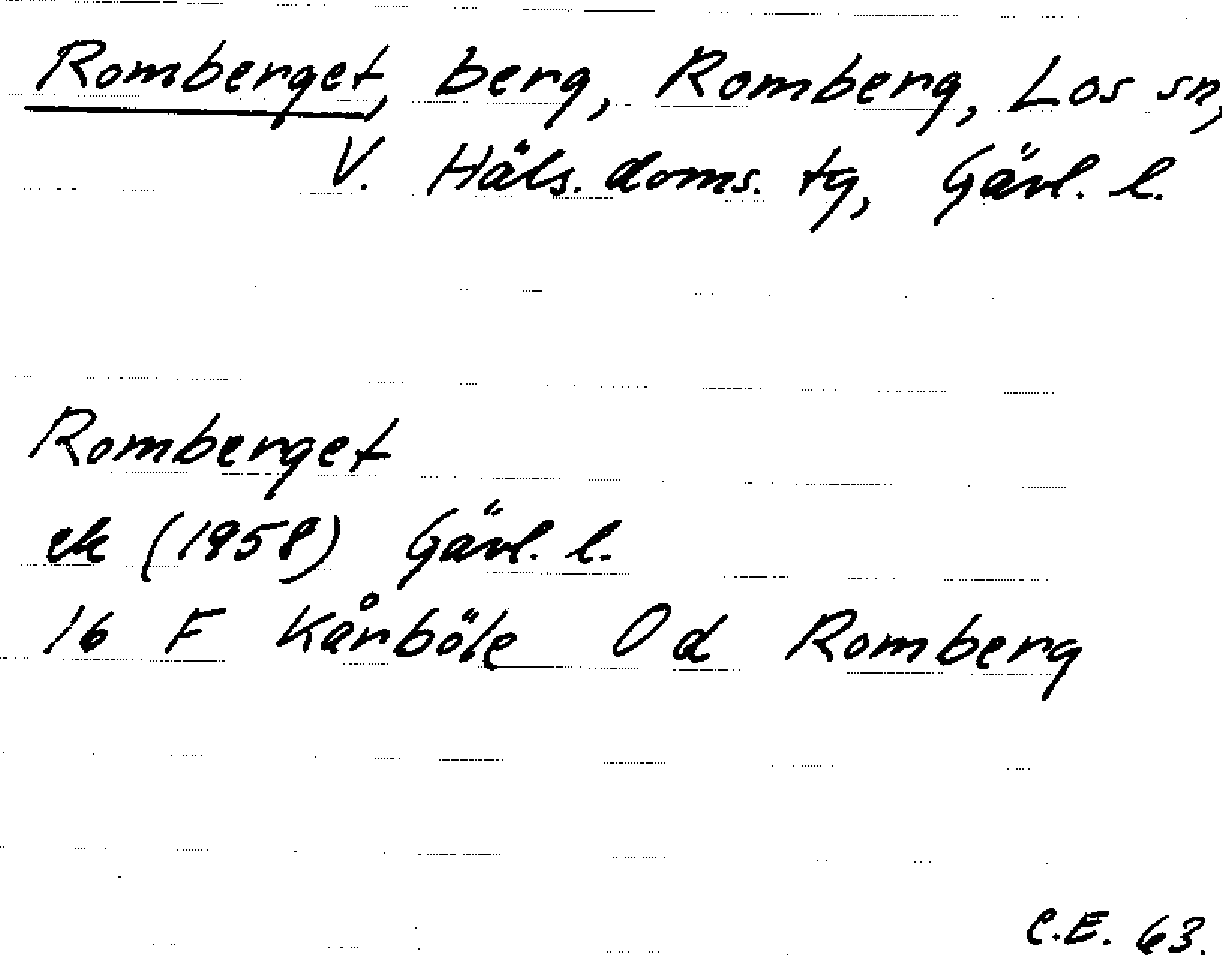 Romberget, berg, Romberg, Los sn,
V. Häls. doms. tg, Gävl. l.
Romberget
ek (1958) Gävl. l.
16 F Kårböle 0 d Romberg
C.E. 63.